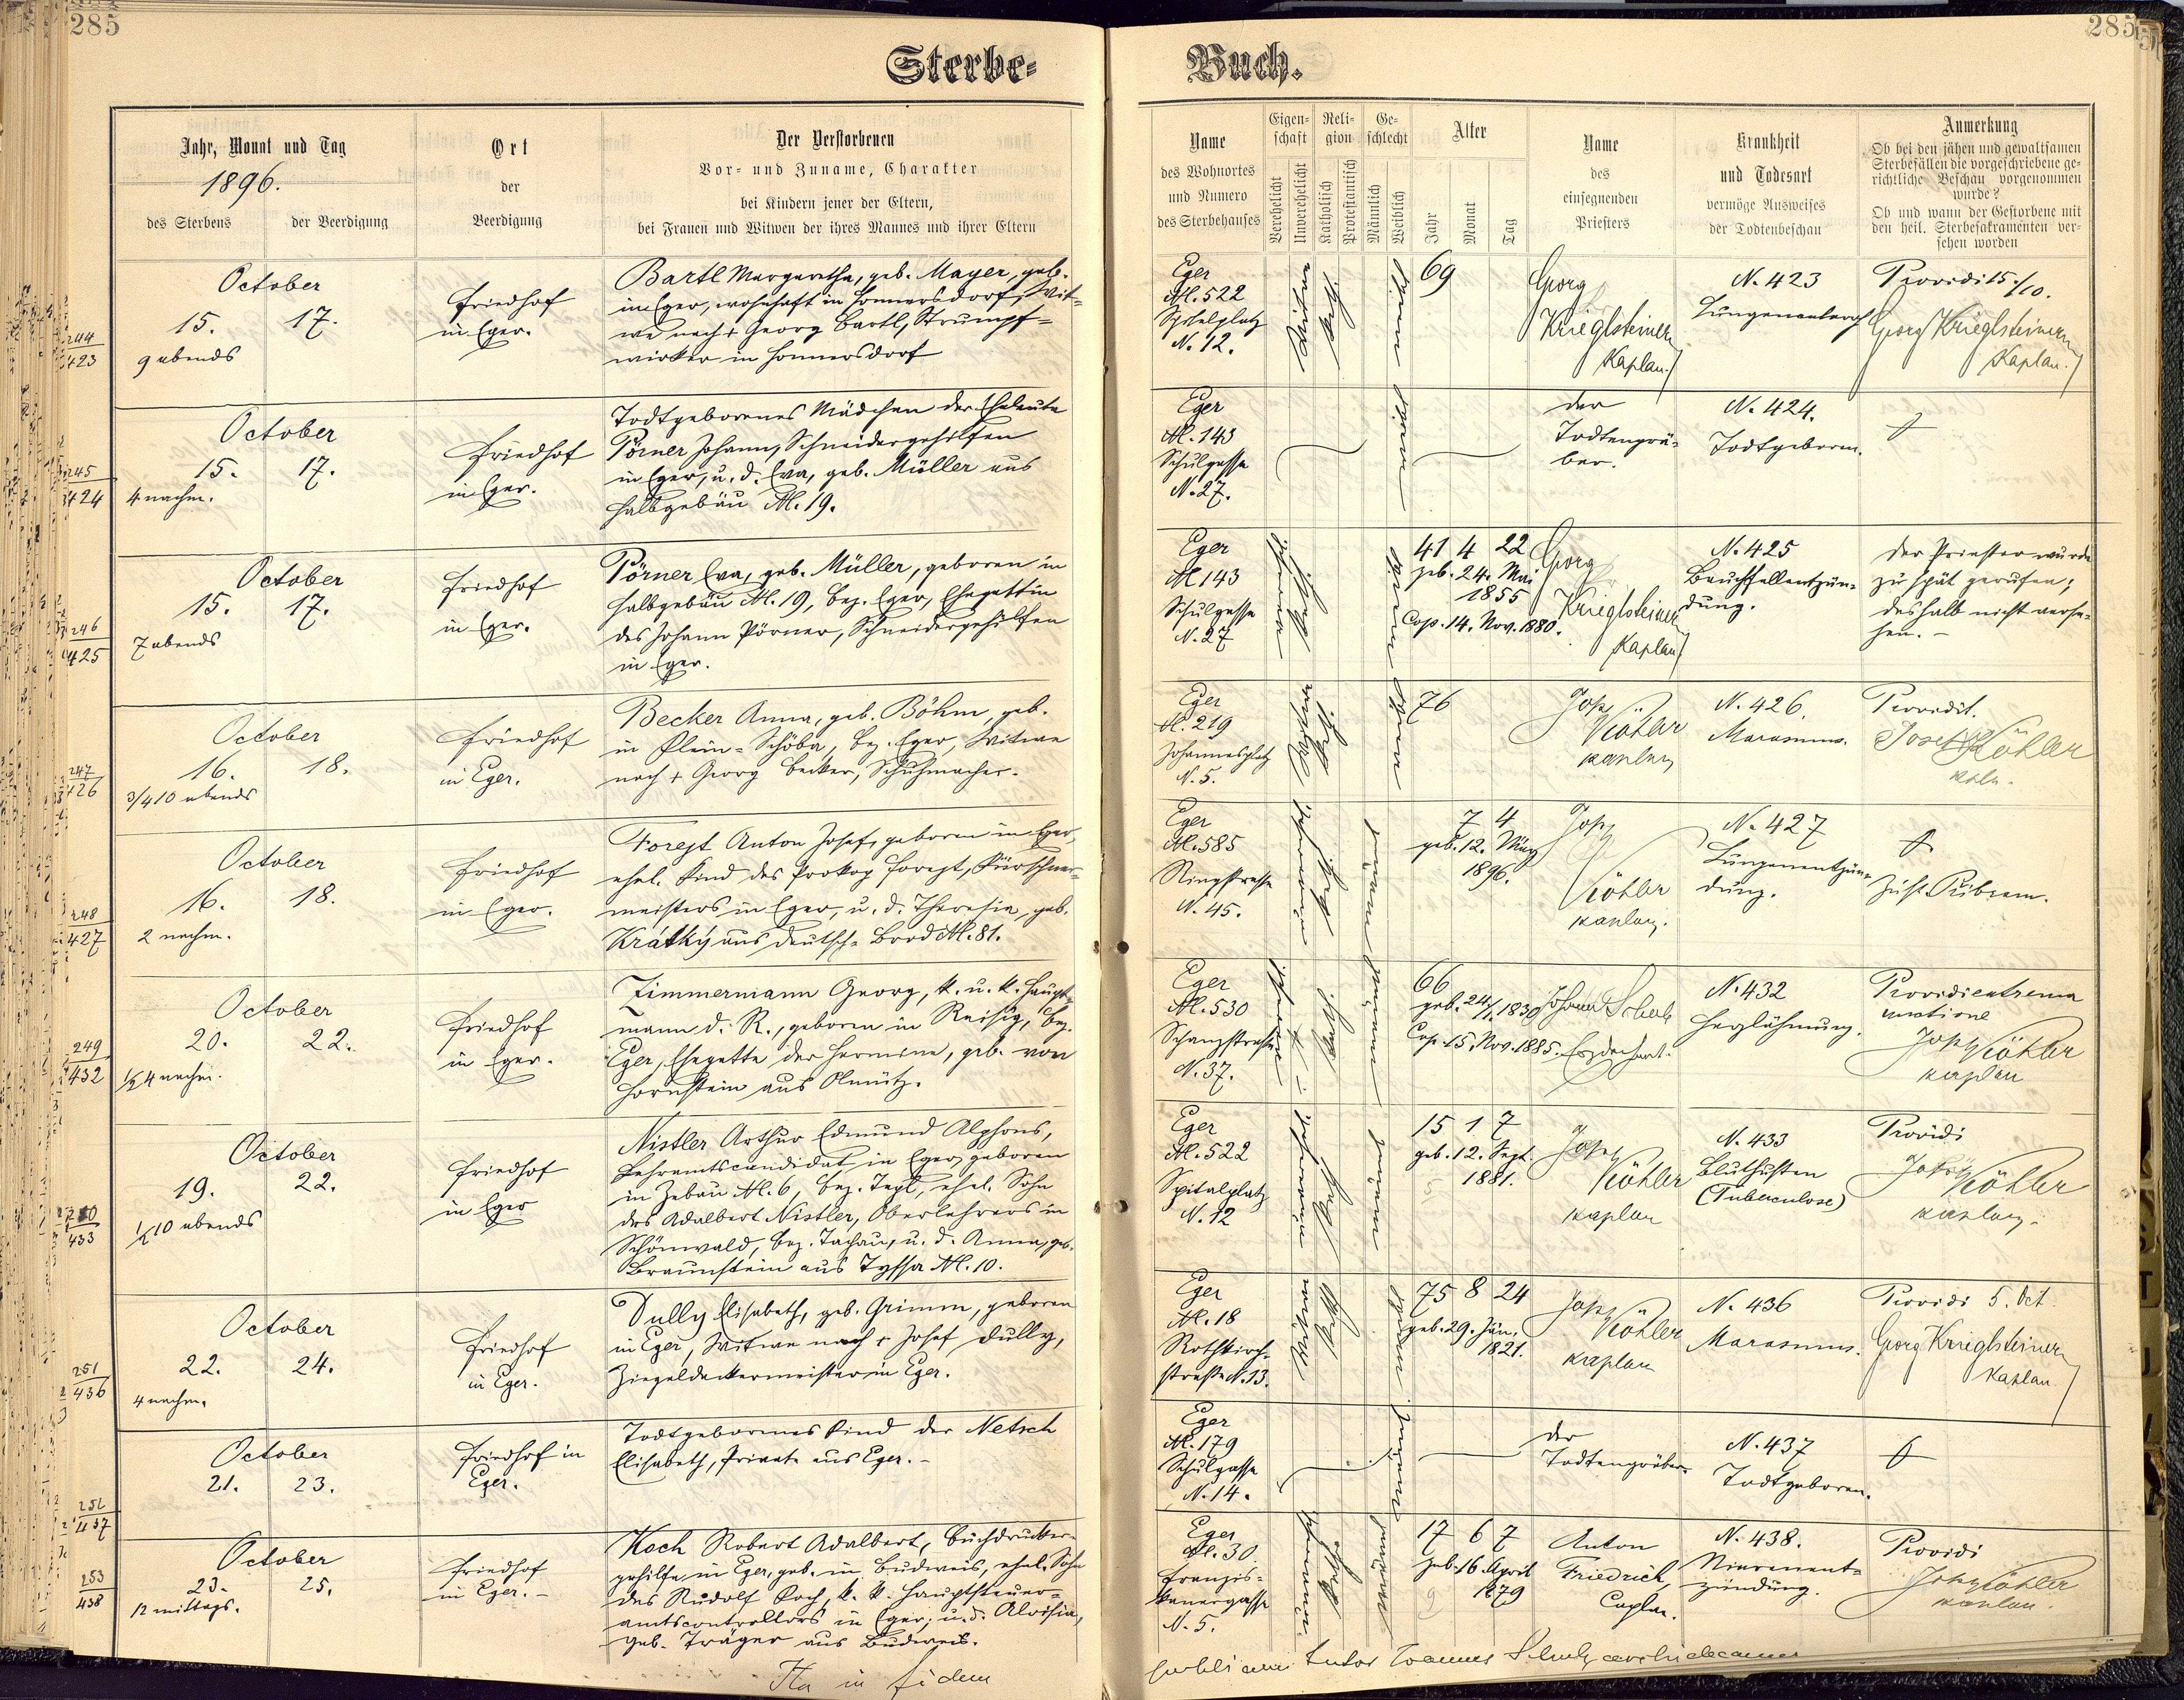 285
285
Sterbe-
Buch.
Jahr, Monat und Tag
1896.
des Sterbens
der Beerdigung
Ort
der
Beerdigung
Der Verstorbenen
Vor- und Zuname, Charakter
bei Kindern jener der Eltern,
bei Frauen und Witwen der ihres Mannes und ihrer Eltern
Name
des Wohnortes
und Numero
des Sterbehauses
Eigen-
schaft
Verehelicht
Unverehelicht
Reli-
gion
Katholisch
Protestantisch
Ge-
schlecht
Männlich
Weiblich
Alter
Jahr
Monat
Tag
Name
des
einsegnenden
Priesters
Krankheit
und Todesart
vermöge Ausweises
der Todtenbeschau
Anmerkung
Ob bei den jähen und gewaltsamen
Sterbefällen die vorgeschriebene ge-
richtliche Beschau vorgenommen
wurde?
Ob und wann der Gestorbene mit
den heil. Sterbesakramenten ver-
sehen worden
244
423
October
15. 17.
9 abends
Friedhof
in Eger.
Bartl Margaretha, geb. Mayer, geb.
in Eger, wohnhaft in Honnersdorf, Wit-
we nach + Georg Bartl, Strumpf-
wirker in Honnersdorf
Eger
N. 522
Spitalplatz
N. 12.
Witwe
kath.
69
Georg
Krieglsteiner
Kaplan.
N. 423
Providi 15./10.
Georg Krieglsteiner
Kaplan.
245
424
October
15. 17.
4 nachm.
Friedhof
in Eger.
Todtgeborenes Mädchen der Eheleute
Pörner Johann, Schneidergehilfen
in Eger, u. d. Eva, geb. Müller aus
Halbgebäu N. 19.
Eger
N. 143
Schulgasse
N. 27.
der
Todtengrä-
ber.
N. 424.
Todtgeboren.
246
425
October
15. 17.
7 abends
Friedhof
in Eger.
Pörner Eva, geb. Müller, geboren in
Halbgebäu N. 19, bez. Eger, Ehegattin
des Johann Pörner, Schneidergehilfen
in Eger.
Eger
N. 143
Schulgasse
N. 27
41 4 22
geb. 24. Mai
1855
Cop. 14. Nov. 1880.
Georg
Krieglsteiner
Kaplan
N. 425
Bauchfellentzün-
dung.
Der Priester wurde
zu spät gerufen;
deshalb nicht verse-
hen. –
247
426
October
16. 18.
3/4 10 abends
Friedhof
in Eger.
Becker Anna, geb. Böhm, geb.
in Klein-Schöba, bez. Eger, Witwe
nach + Georg Becker, Schuhmacher.
Eger
N. 219
Johannesplatz
N. 5.
Witwe
kath.
76
Josef
Köhler
Kaplan
N. 426.
Marasmus.
Providit.
Josef Köhler
248
427
October
16. 18.
2 nachm.
Friedhof
in Eger.
Forejt Anton Josef, geboren in Eger,
ehel. Kind des Prokop Forejt, Kürschner-
meisters in Eger, u. d. Theresia, geb.
Krátký aus Deutsch-Brod N. 81.
Eger
N. 585
Ringstrasse
N. 45.
7 4
geb. 12. März
1896.
Josef
Köhler
Kaplan.
N. 427
Lungenentzün-
dung.
Zust. Přibram.
249
432
October
20. 22.
1/2 4 nachm.
Friedhof
in Eger.
Zimmermann Georg, k. u. k. Haupt-
mann d. R., geboren in Reisig, bez.
Eger, Ehegatte der Hermine, geb. von
Hornstein aus Olmütz.
Eger
N. 530
Schanzstrasse
N. 37.
66
geb. 24/1. 1830
Cop. 15. Nov. 1885.
Johann
Erzdechant.
N. 432
Herzlähmung.
Providi extrema
unctione
Josef Köhler
Kaplan
433
October
19. 22.
1/2 10 abends
Friedhof
in Eger
Nistler Arthur Edmund Alphons,
Lehramtscandidat in Eger, geboren
in Zebau N. 6, bez. Tepl, ehel. Sohn
des Adalbert Nistler, Oberlehrers in
Schönwald, bez. Tachau, u. d. Anna, geb.
Braunstein aus Tyssa N. 10.
Eger
N. 522
Spitalplatz
N. 12
15 1 7
geb. 12. Sept.
1881.
Josef
Köhler
Kaplan
N. 433
Bluthusten
(Tuberculose)
Providi
Josef Köhler
Kaplan.
251
436
October
22. 24.
4 nachm.
Friedhof
in Eger.
Dully Elisabeth, geb. Grimm, geboren
in Eger, Witwe nach + Josef Dully,
Ziegeldeckermeister in Eger.
Eger
N. 18
Rothkirch-
strasse N. 13.
Witwe
kath.
75 8 24
geb. 29. Jän.
1821.
Josef
Köhler
Kaplan
N. 436
Marasmus.
Providi 5. Oct.
Georg Krieglsteiner
Kaplan
252
437
October
21. 23.
Friedhof in
Eger.
Todtgeborenes Kind der Netsch
Elisabeth, Private aus Eger. –
Eger
N. 179
Schulgasse
N. 14.
der
Todtengräber.
N. 437
Todtgeboren.
253
438
October
23. 25.
12 mittags.
Friedhof
in Eger. –
Koch Robert Adalbert, Buchdrucker-
gehilfe in Eger, geb. in Budweis, ehel. Sohn
des Rudolf Koch, k. k. Hauptsteuer-
amtscontrollors in Eger, u. d. Aloisia,
geb. Träger aus Budweis.
Eger
N. 30
Franzis-
kanergasse
N. 5.
17 6 7
geb. 16. April
1879
Anton
Friedrich,
Caplan.
N. 438.
Nierenent-
zündung.
Providi
Josef Köhler
Kaplan.
Ita in fidem